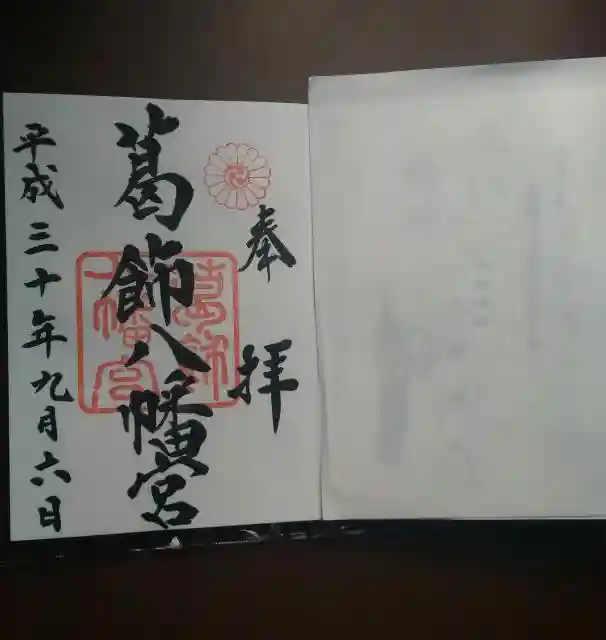 奉拝
葛飾八幡宮
葛飾八幡宮
平成三十年九月六日